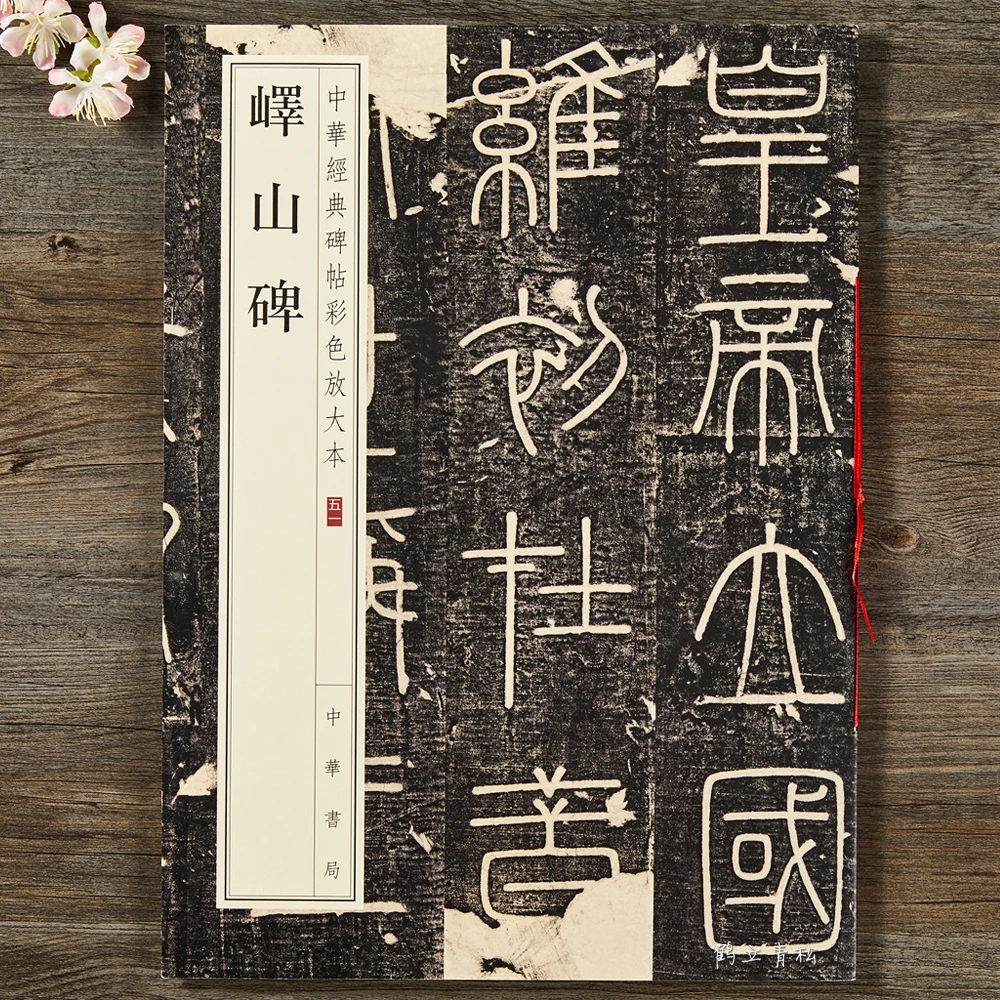 皇帝立國
維初在昔
中華經典碑帖彩色放大本
五一
中華書局
嶧山碑
鹤立青松